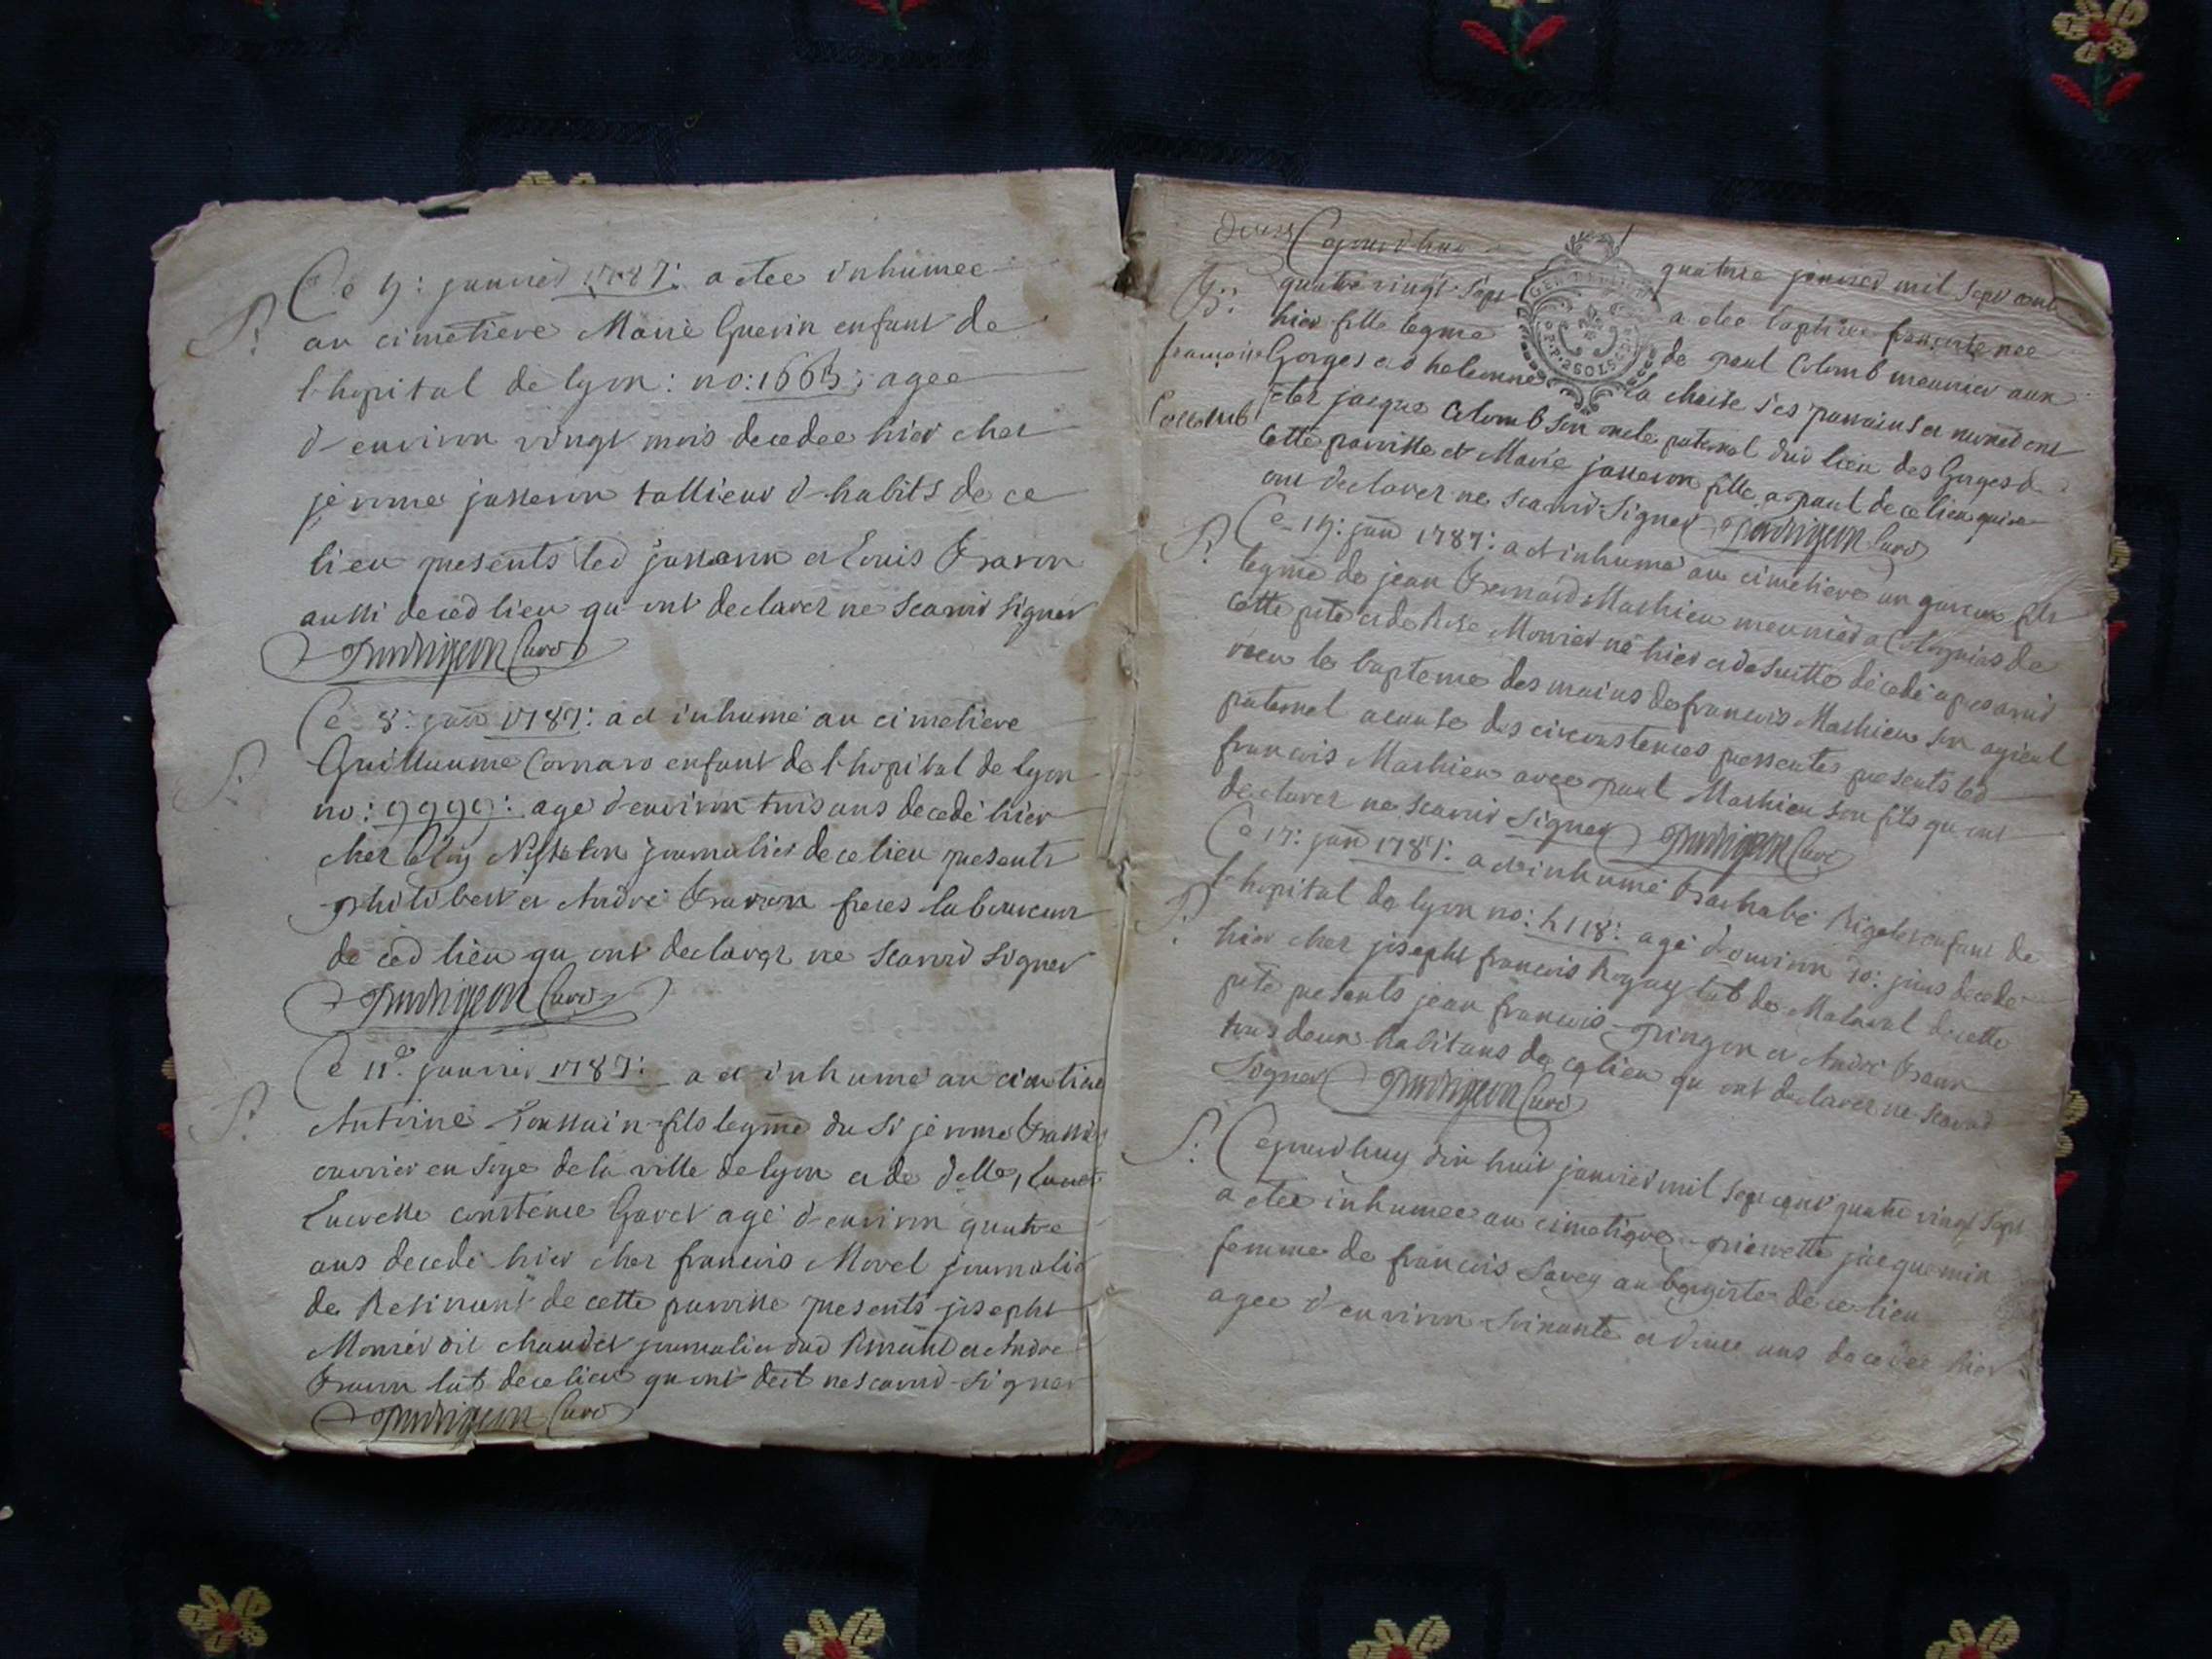 Ce 7: janvier 1787: a etee inhumee
S:
au cimetiere Marie Guerin enfant de
l-hopital de lyon: no: 1663: agee
d-environ vingt mois decedee hier chez
jerome josseron tallieur d-habits de ce
lieu presents led josseron et Louis Fraron
aussi de ced lieu qu ont declarez ne scavoir signer
Curé
Ce 8: janv 1787: a et inhumé au cimetiere
S:
Guillaume Cornaro enfant de l-hopital de lyon
no: 9999: agé d'environ trois ans decedé hier
chez journalier de ce lieu presents
philibert et André freres laboureur
de ced lieu qu ont declarez ne scavoir signer
Curé
Ce 11e janvier 1787: a et inhumé au cimetiere
S:
Antoine Toussain fils legme du Sr jerome
ouvrier en soye de la ville de lyon et de delle
Lucresse constence Garet agé d-environ quatre
ans decedé hier chez francois Morel journalier
de de cette paroisse presents joseph
Monier dit chaudet journalier dud et André
lab de ce lieu qu ont decl ne scavoir signer
Curé
douze Cejourd'huy quatorze janvier mil sept cent
B:
quatre vingt sept a etee baptisee francoise nee
hier fille legme de paul Colomb meunier aux
francoise
Gorges et d helenne la chaise ses parrains et
Collomb
etez jacques Colomb son oncle paternel dud lieu des Gorges de
cette paroisse et Marie josseron fille a paul de ce lieu qui
ont declarez ne scavoir signer Curé
S:
Ce 14: janv 1787: a et inhumé au cimetiere un garcon fils
legme de jean Bernard Mathieu meunier a de
cette psse et de Rose Monier né hier et de suitte decedé apres avoir
recu le bapteme des mains de francois Mathieu son ayieul
paternel acause des circonstences pressentes presents led
francois Mathieu avec paul Mathieu son fils qu ont
declarez ne scavoir signer Curé
Ce 17: janv 1787: a et inhumé enfant de
S:
l-hopital de lyon no: agé d-environ 10: jours decedé
hier chez joseph francois lab de Malaval de cette
psse presents jean francois et André
tous deux habitans de ce lieu qu ont declarez ne scavoir
signer Curé
S:
Cejourd'huy dix huit janvier mil sept cent quatre vingt sept
a etee inhumee au cimetiere pierrette jacquemin
femme de francois Savey aubergiste de ce lieu
agee d'environ soixante et douze ans decedee hier
GENERALITE